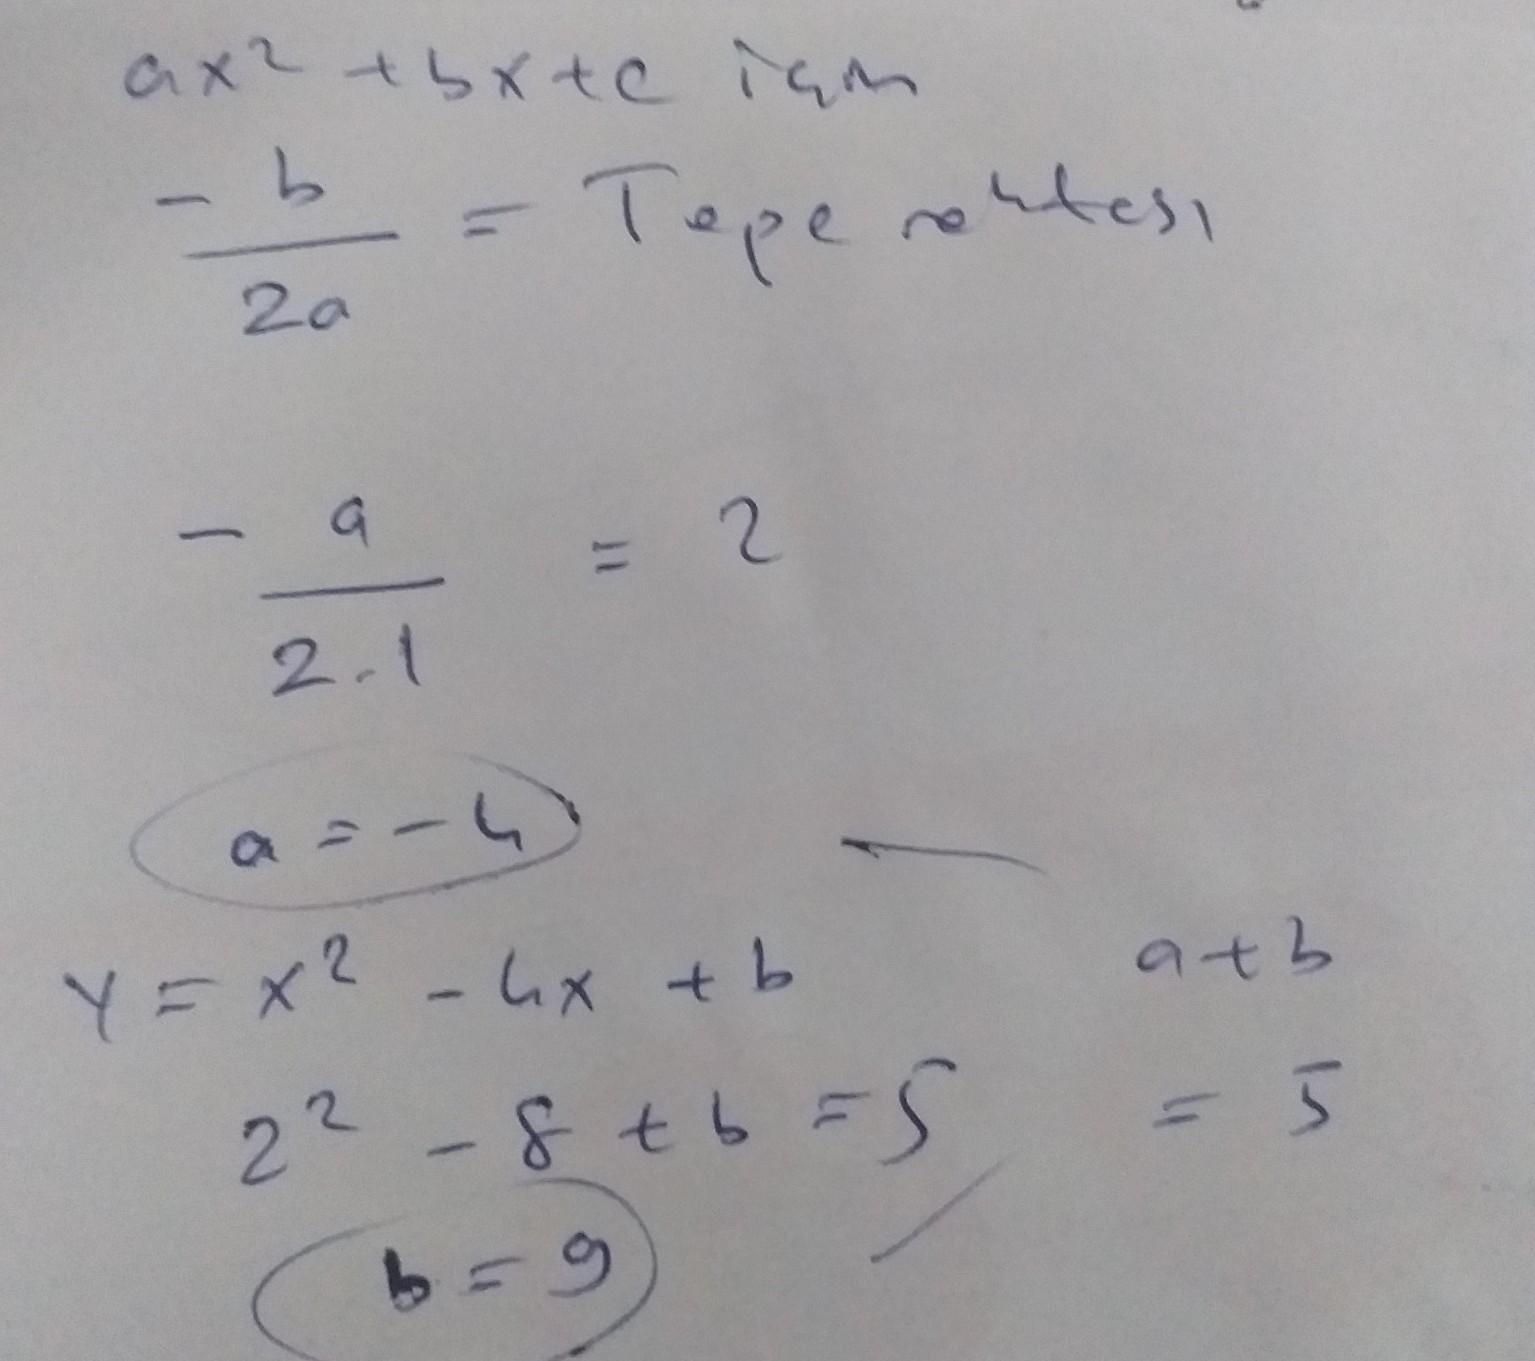 ax² + bx + c için
- b / 2a = Tepe noktası
- a / 2.1 = 2
a = -4
y = x² - 4x + b
a + b
2² - 8 + b = 5
= 5
b = 9